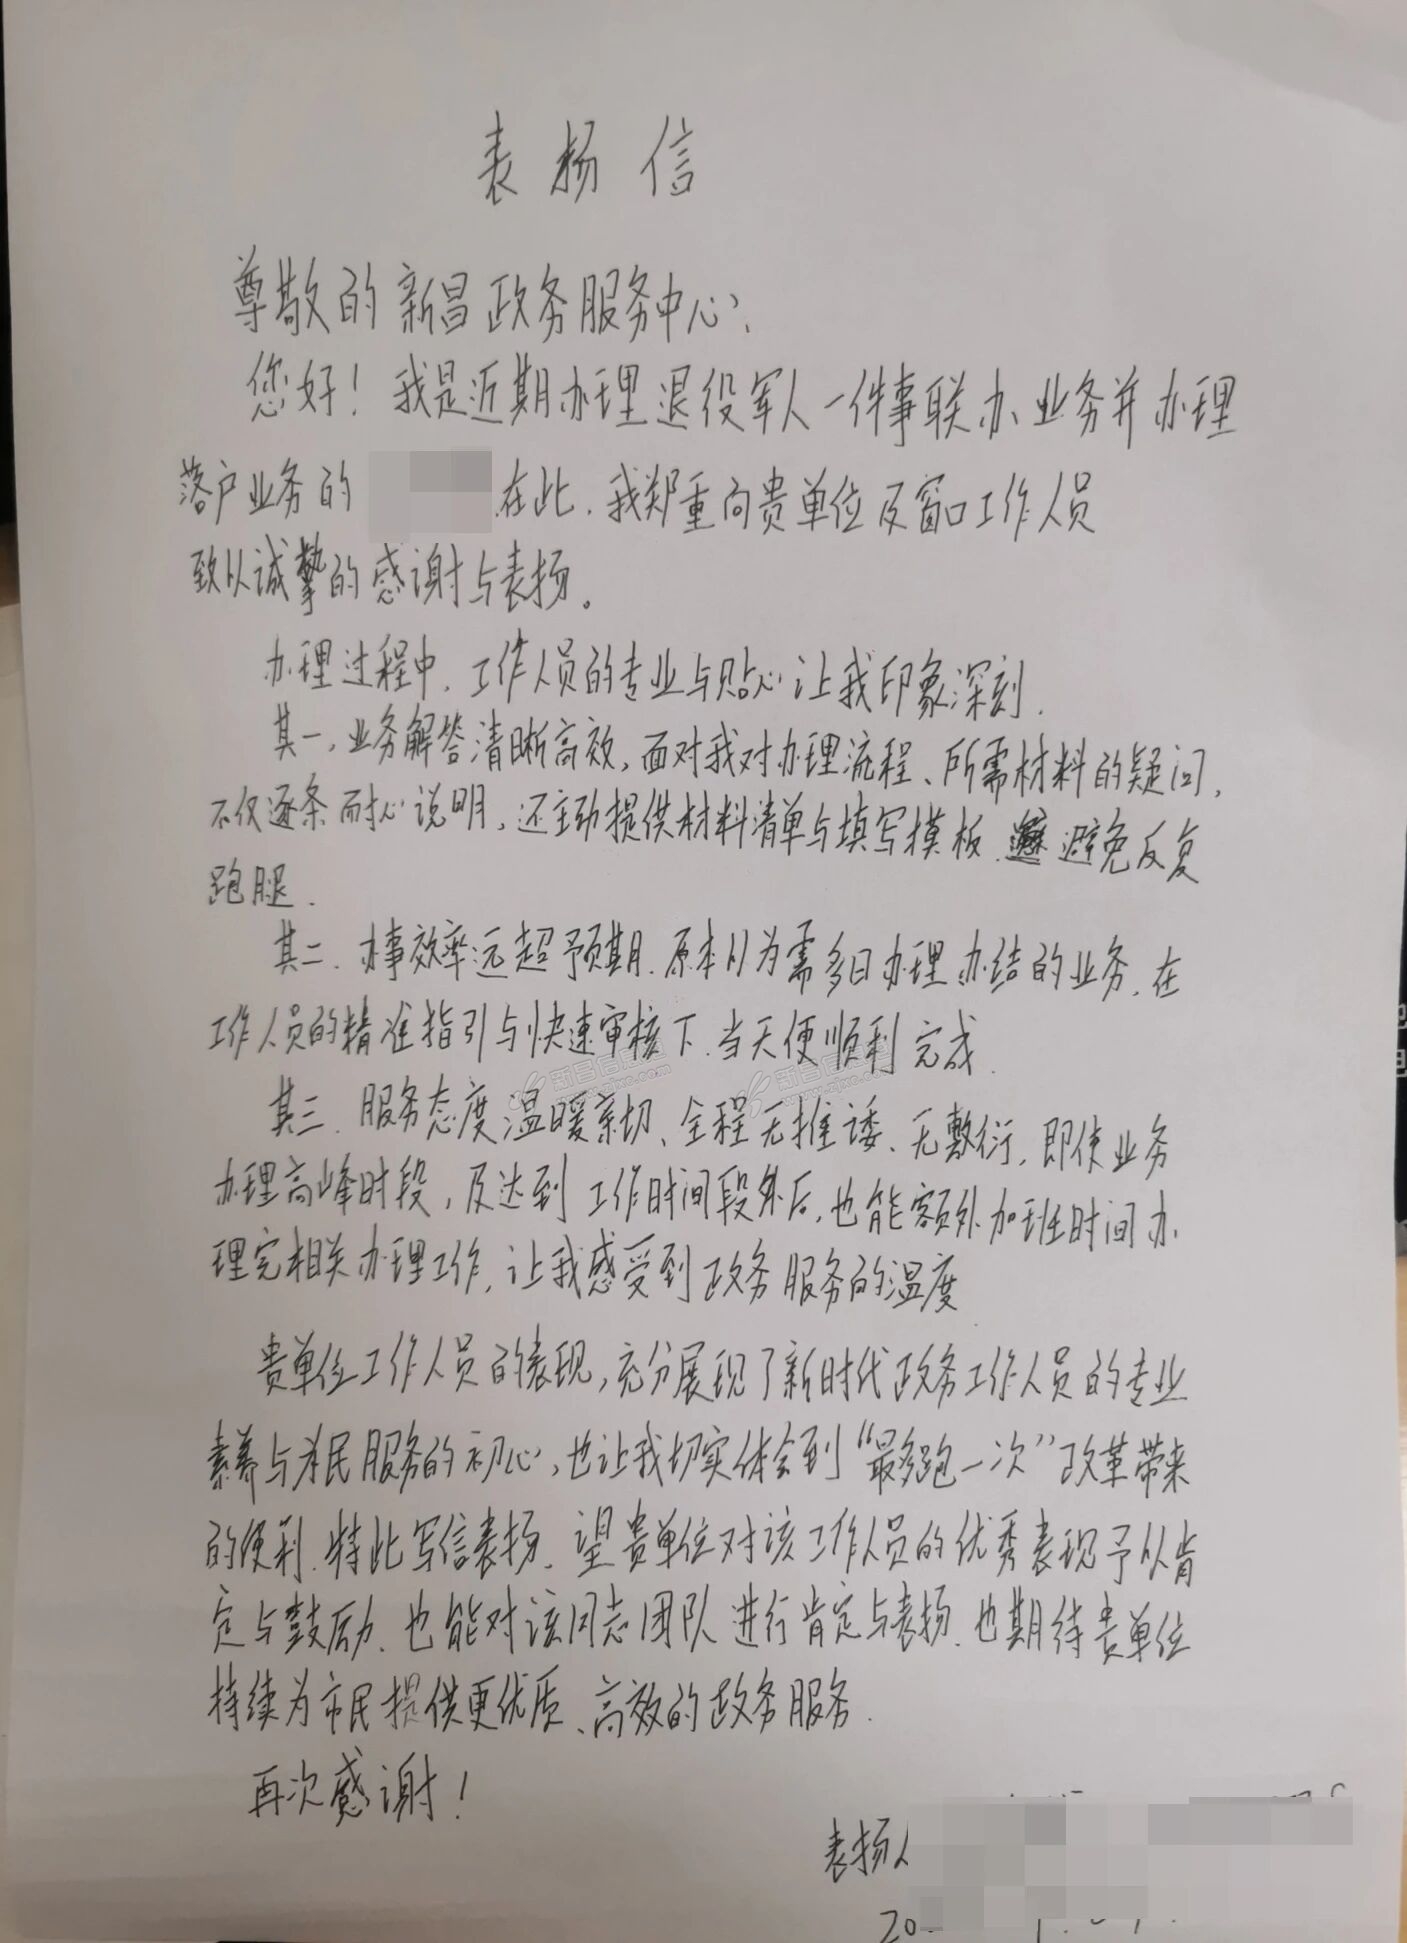 表扬信
尊敬的新昌政务服务中心:
您好！我是近期办理退役军人一件事联办业务并办理
落户业务的 在此,我郑重向贵单位及窗口工作人员
致以诚挚的感谢与表扬。
办理过程中,工作人员的专业与贴心让我印象深刻.
其一,业务解答清晰高效,面对我对办理流程、所需材料的疑问,
不仅逐条耐心说明,还主动提供材料清单与填写模板, 避免反复
跑腿.
其二.办事效率远超预期.原本以为需多日办理办结的业务,在
工作人员的精准指引与快速审核下.当天便顺利完成.
其三.服务态度温暖亲切、全程无推诿、无敷衍,即使业务
办理高峰时段,及达到工作时间段外后,也能额外加班时间办
理完相关办理工作,让我感受到政务服务的温度
贵单位工作人员的表现,充分展现了新时代政务工作人员的专业
素养与为民服务的初心,也让我切实体会到“最多跑一次”改革带来
的便利.特此写信表扬.望贵单位对该工作人员的优秀表现予以肯
定与鼓励.也能对该同志团队进行肯定与表扬.也期待贵单位
持续为市民提供更优质、高效的政务服务.
再次感谢！
表扬人
20
新昌信息港
zjxc.com